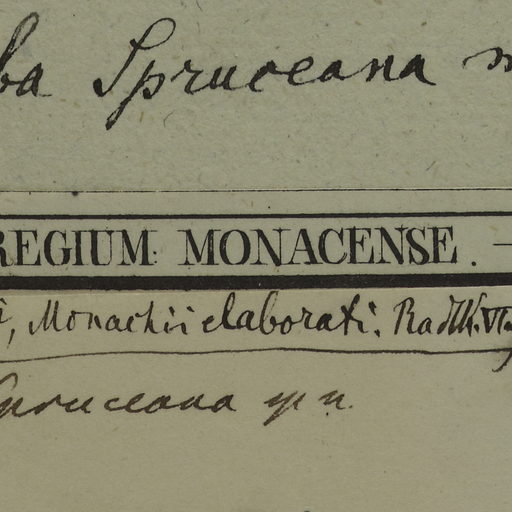 ba Spruceana m
REGIUM MONACENSE. —
, Monachii elaborati. Radlk. VI
Spruceana sp. n.